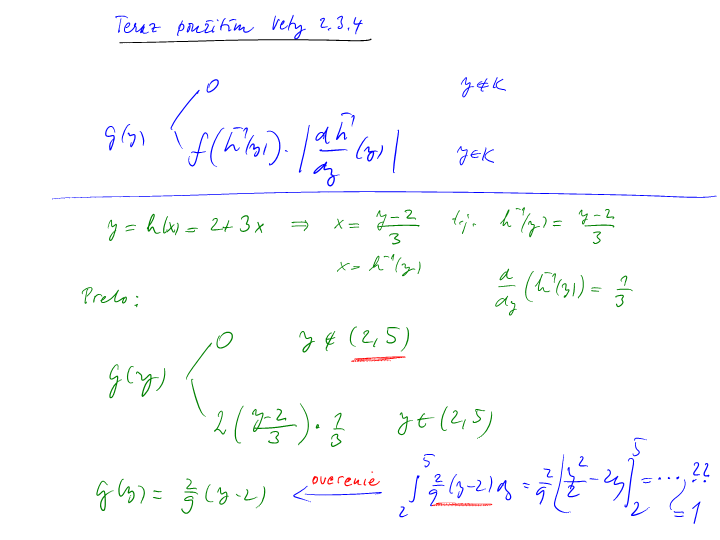 Teraz použitím Vety 2.3.4
0 y ∉ K
g(y)
f(h⁻¹(y)) · |dh⁻¹/dy (y)| y ∈ K
y = h(x) = 2+3x ⇒ x = (y-2)/3 t.j. h⁻¹(y) = (y-2)/3
x = h⁻¹(y) d/dy (h⁻¹(y)) = 1/3
Preto:
0 y ∉ (2,5)
g(y)
2((y-2)/3) · 1/3 y ∈ (2,5)
g(y) = 2/9 (y-2) overenie ∫₂⁵ 2/9 (y-2) dy = 2/9 [y²/2 - 2y]₂⁵ = ... ??
= 1